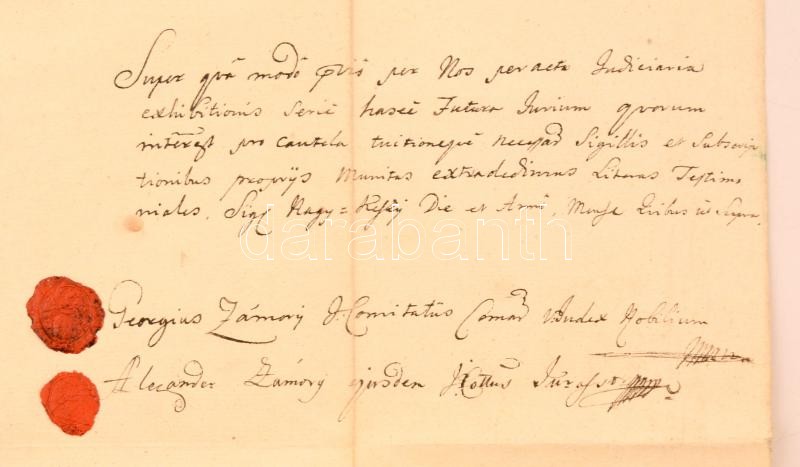 Super quâ modo pviô per Nos peracta Judiciaria
exhibitionis Serie hasce Futura Jurium quorum
interest pro cautela tuitioneque necessar Sigillis et Subscrip
tionibus proprijs Munitas extradedimus Literas Testimo
niales. Sig Nagy=Keszy Die et Anno, Mense Quibus ut Supra.
darabanth
Georgius Zámory J. Comitatûs Comar Vjudex Nobilium
Alexander Zámory ejusdem J Cottus Jurassor